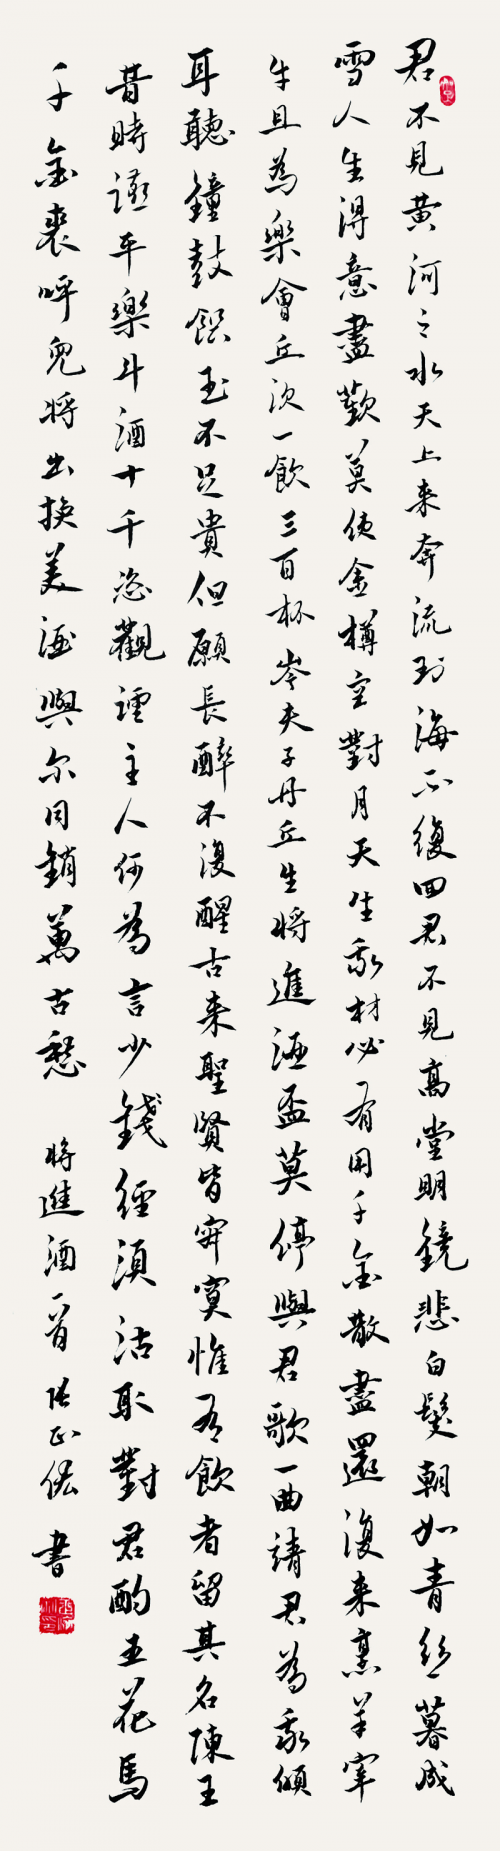 君不見黃河之水天上来奔流到海不復回君不見高堂明鏡悲白髮朝如青絲暮成
雪人生得意盡歡莫使金樽空對月天生我材必有用千金散盡還復来烹羊宰
牛且為樂會丘須一飲三百杯岑夫子丹丘生將進酒盃莫停與君歌一曲請君為我傾
耳聽鐘鼓饌玉不足貴但願長醉不復醒古来聖賢皆寂寞惟有飲者留其名陳王
昔時讌平樂斗酒十千恣觀謔主人何為言少錢徑須沽取對君酌五花馬
千金裘呼兒將出換美酒與尔同銷萬古愁 將進酒一首 張正 書